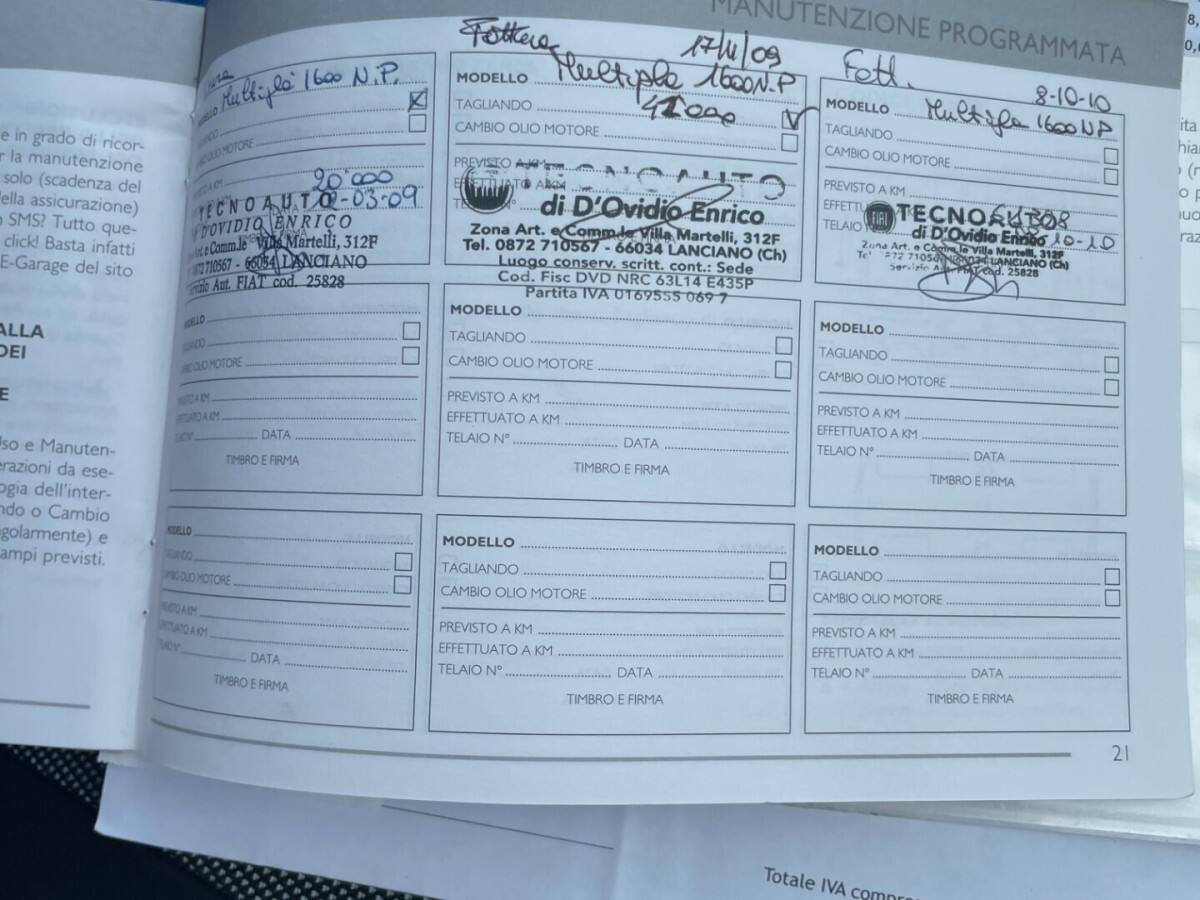 MANUTENZIONE PROGRAMMATA
e in grado di ricor-
r la manutenzione
solo (scadenza del
ella assicurazione)
SMS? Tutto que-
click! Basta infatti
E-Garage del sito
ALLA
DEI
E
so e Manuten-
erazioni da ese-
ogia dell'inter-
ndo o Cambio
golarmente) e
ampi previsti.
Multipla 1600 N.P.
OLIO MOTORE
20'000
-03-09
TECNOAUTO
D'OVIDIO ENRICO
Art. e Comm.le Villa Martelli, 312F
0872 710567 - 66034 LANCIANO
Aut. FIAT cod. 25828
17/11/09
MODELLO Multipla 1600 N.P
TAGLIANDO 41000
CAMBIO OLIO MOTORE
PREVISTO A KM
TECNOAUTO
di D'Ovidio Enrico
Zona Art. e Comm.le Villa Martelli, 312F
Tel. 0872 710567 - 66034 LANCIANO (Ch)
Luogo conserv. scritt. cont.: Sede
Cod. Fisc DVD NRC 63L14 E435P
Partita IVA 0169555 069 7
Fatt. 8-10-10
MODELLO Multipla 1600 NP
TAGLIANDO
CAMBIO OLIO MOTORE
PREVISTO A KM
FIAT TECNOAUTO
di D'Ovidio Enrico
10-10
Zona Art. e Comm.le Villa Martelli, 312F
LANCIANO (Ch)
FIAT cod. 25828
MODELLO
OLIO MOTORE
PREVISTO A KM
EFFETTUATO A KM
TELAIO N° DATA
TIMBRO E FIRMA
MODELLO
TAGLIANDO
CAMBIO OLIO MOTORE
PREVISTO A KM
EFFETTUATO A KM
TELAIO N° DATA
TIMBRO E FIRMA
MODELLO
TAGLIANDO
CAMBIO OLIO MOTORE
PREVISTO A KM
EFFETTUATO A KM
TELAIO N° DATA
TIMBRO E FIRMA
MODELLO
TAGLIANDO
CAMBIO OLIO MOTORE
PREVISTO A KM
EFFETTUATO A KM
TELAIO N° DATA
TIMBRO E FIRMA
MODELLO
TAGLIANDO
CAMBIO OLIO MOTORE
PREVISTO A KM
EFFETTUATO A KM
TELAIO N° DATA
TIMBRO E FIRMA
MODELLO
TAGLIANDO
CAMBIO OLIO MOTORE
PREVISTO A KM
EFFETTUATO A KM
TELAIO N° DATA
TIMBRO E FIRMA
21
Totale IVA compre